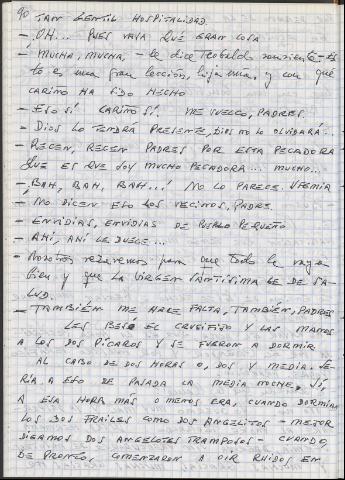 90
TAN GENTIL HOSPITALIDAD.
- OH... PUES VAYA QUÉ GRAN COSA
- ¡MUCHA, MUCHA, - le dice Teobaldo sonriente - ES
to es una gran lección, hija mía, y con qué
CARIÑO HA SIDO HECHO
- ESO SÍ CARIÑO SÍ. PADRES.
- DIOS LO TENDRÁ PRESENTE, DIOS NO LO OLVIDARÁ...
- RECEN, RECEN PADRES POR ESTA PECADORA
QUE ES QUE SOY MUCHO PECADORA... MUCHO...
- ¡BAH, BAH, BAH...! NO LO PARECE.
- NO DICEN ESO LOS VECINOS, PADRE.
- ENVIDIAS, ENVIDIAS DE PUEBLO PEQUEÑO
- AHÍ, AHÍ LE DUELE...
- Nosotros rezaremos para que todo le vaya
bien y que LA VIRGEN SANTÍSIMA LE DE SA-
LUD.
- TAMBIÉN ME HACE FALTA, TAMBIÉN, PADRES
LES BESÓ EL CRUCIFIJO Y LAS MANOS
A LOS DOS PÍCAROS Y SE FUERON A DORMIR
AL CABO DE DOS HORAS O, DOS Y MEDIA, SE-
RÍA A ESO DE PASADA LA MEDIA NOCHE, SÍ,
A ESA HORA MÁS O MENOS ERA, CUANDO DORMÍAN
LOS DOS FRAILES COMO DOS ANGELITOS - MEJOR
DIGAMOS DOS ANGELOTES TRAMPOSOS - CUANDO,
DE PRONTO, COMENZARON A OIR RUIDOS EN